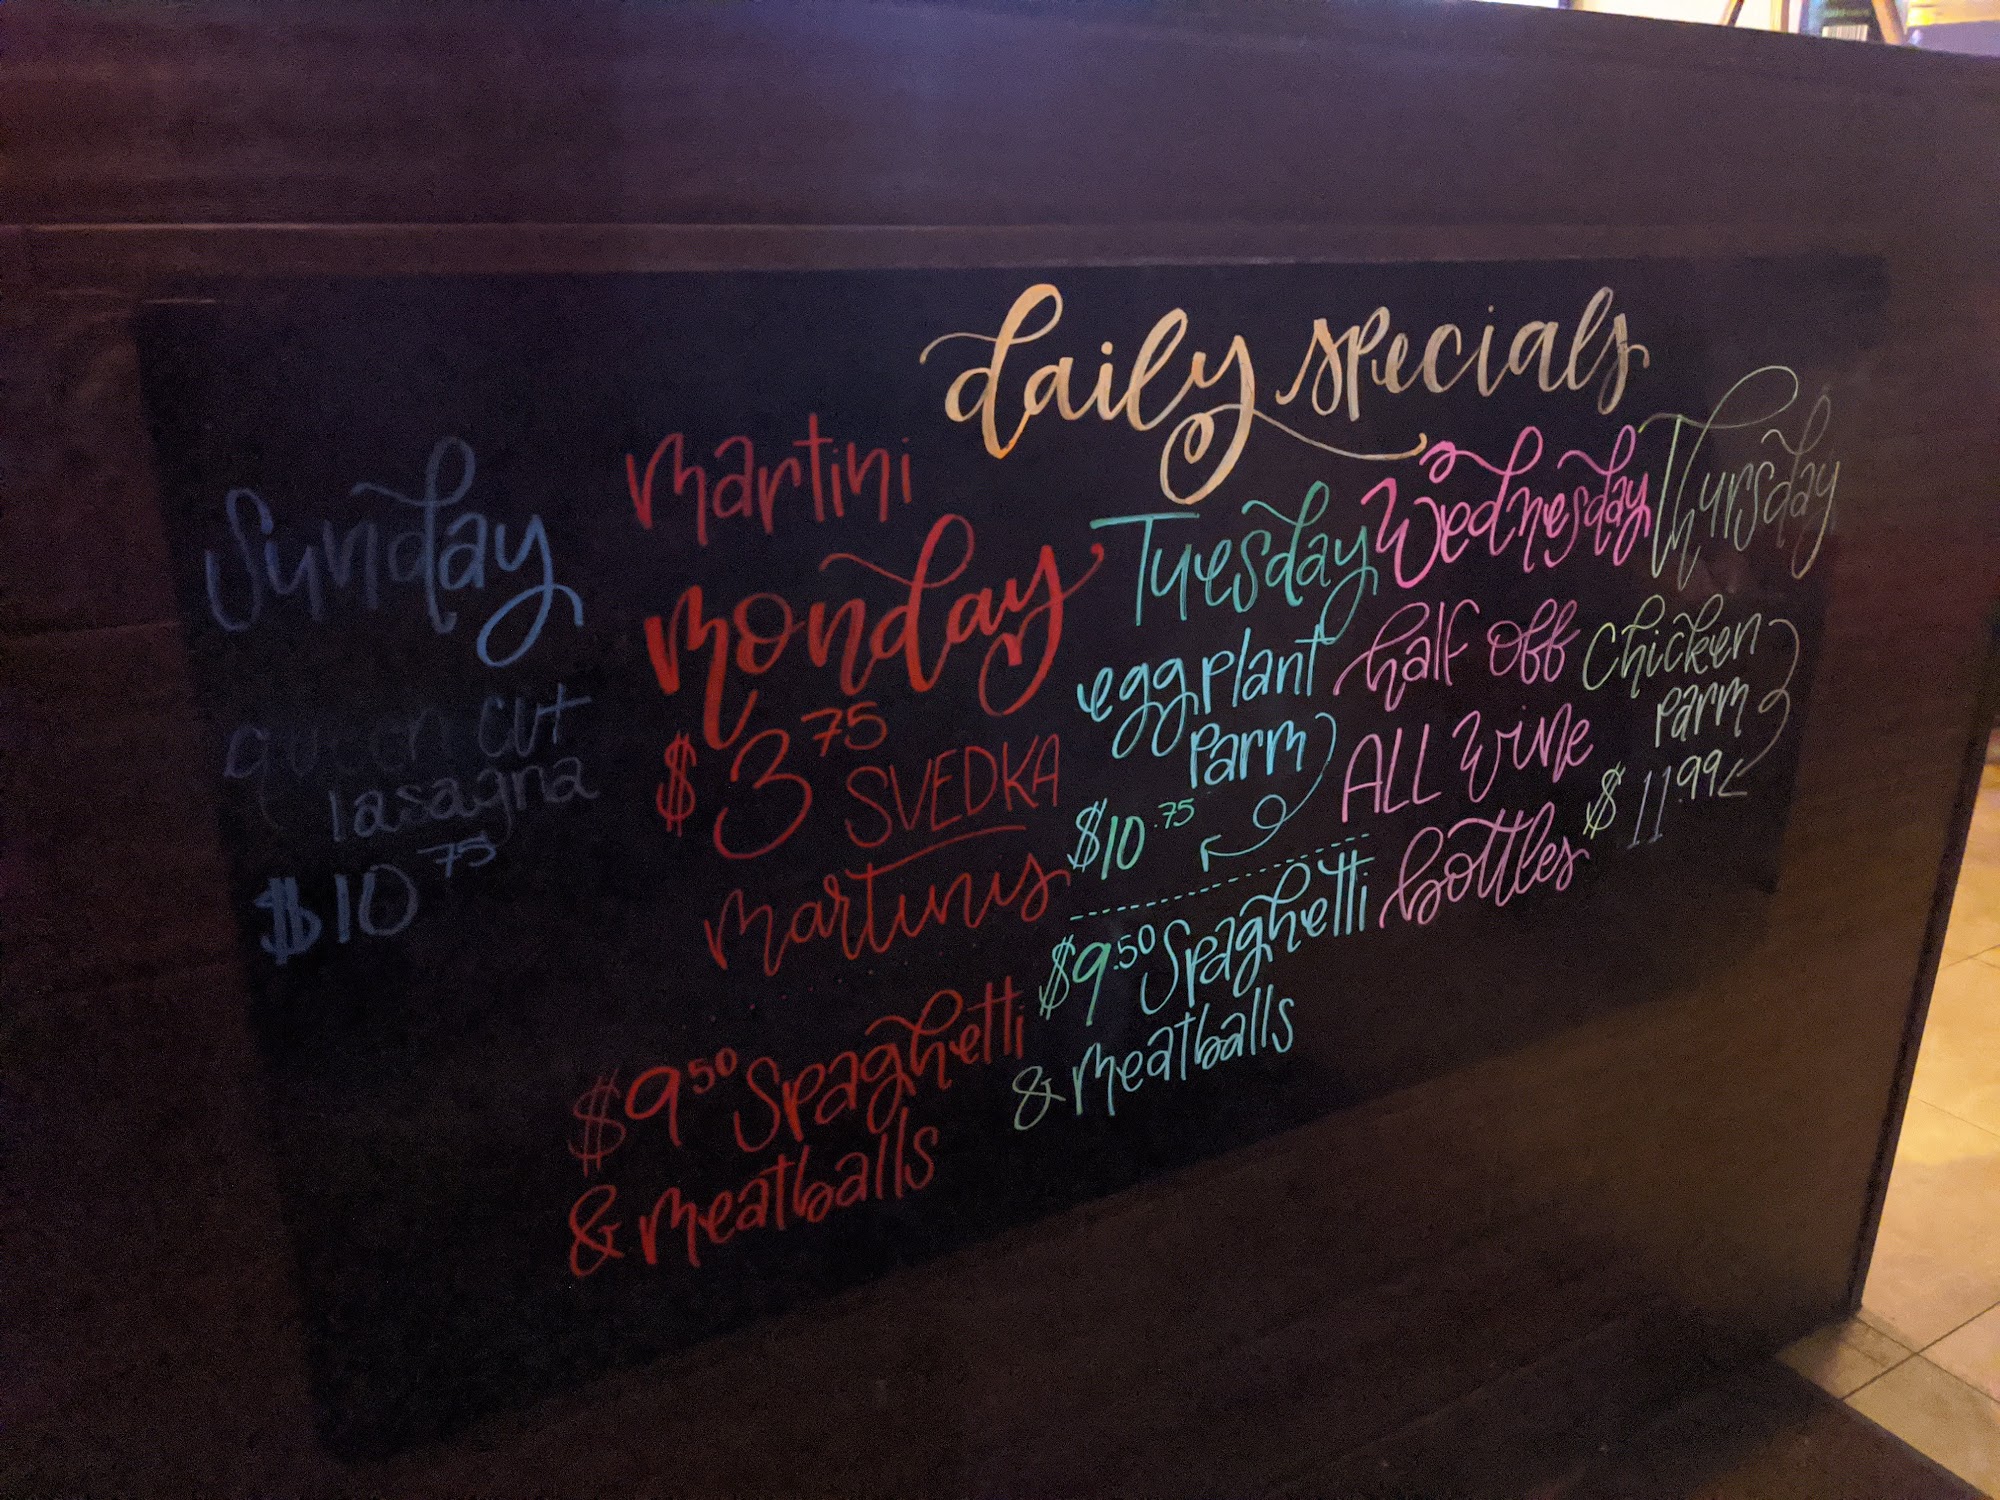 daily specials
Sunday
queen cut
lasagna
$10 75
martini
monday
$3 75
SVEDKA
martinis
$9 50 Spaghetti
& meatballs
Tuesday
eggplant
parm
$10.75
$9.50 Spaghetti
& meatballs
Wednesday
half off
ALL wine
bottles
Thursday
Chicken
parm
$11.99